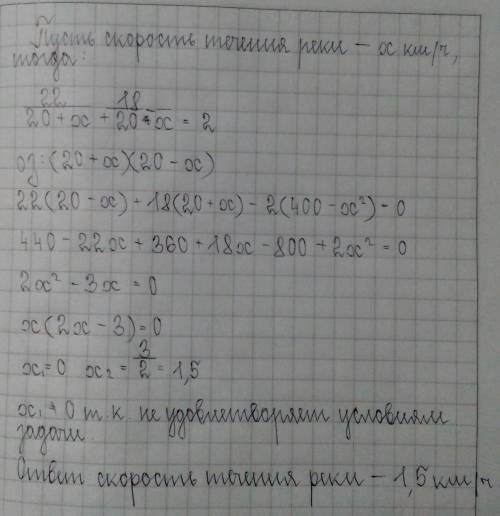 Пусть скорость течения реки – x км/ч,
тогда:
22/(20+x) + 18/(20-x) = 2
оз: (20+x)(20-x)
22(20-x)+18(20+x)-2(400-x²)=0
440-22x+360+18x-800+2x²=0
2x²-3x=0
x(2x-3)=0
x₁=0 x₂=3/2=1,5
x₁≠0 т.к не удовлетворяет условиям
задачи
Ответ скорость течения реки – 1,5 км/ч